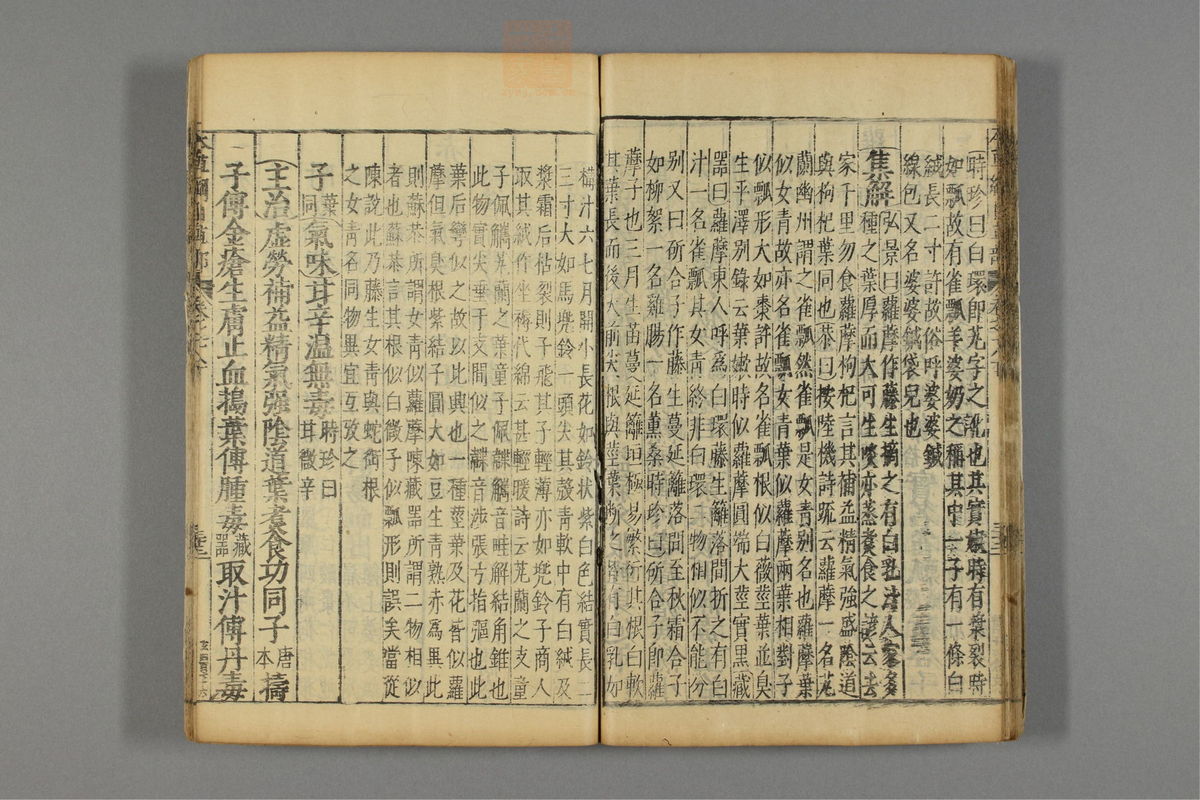 時珍曰白環即芄字之訛也其實嫩時有漿裂時
如瓢故有雀瓢羊婆奶之稱其中一子有一條白
絨長二寸許故俗呼婆婆鍼
線包又名婆婆鍼袋兒也
集解弘景曰蘿藦作藤生摘之有白乳汁人家多
種之葉厚而大可生啖亦蒸煮食之諺云去
家千里勿食蘿藦枸杞言其補益精氣強盛陰道
與枸杞葉同也恭曰按陸機詩疏云蘿藦一名芄
蘭幽州謂之雀瓢然雀瓢是女青別名也蘿藦葉
似女青故亦名雀瓢女青葉似蘿藦兩葉相對子
似瓢形大如棗許故名雀瓢根似白薇莖葉並臭
生平澤別錄云葉嫩時似蘿藦圓端大莖實黑藏
器曰蘿藦東人呼爲白環藤生籬落間折之有白
汁一名雀瓢其女青終非白環二物相似不能分
別又曰斫合子作藤生蔓延籬落間至秋霜合子
如柳絮一名雞腸一名薰桑時珍曰斫合子即蘿
藦子也三月生苗蔓延籬垣極易繁衍其根白軟
其葉長而後大前尖根與莖葉斷之皆有白乳如
構汁六七月開小長花如鈴狀紫白色結實長二
三寸大如馬兜鈴一頭尖其殼青軟中有白絨及
漿霜后枯裂則子飛其子輕薄亦如兜鈴子商人
取其絨作坐褥代綿云甚輕暖詩云芄蘭之支童
子佩觿芄蘭之葉童子佩韘觿音畦解結角錐也
此物實尖垂于支間似之韘音涉張弓指彄也此
葉后彎似之故以比興也一種莖葉及花皆似蘿
藦但氣臭根紫結子圓大如豆生青熟赤爲異此
則蘇恭所謂女青似蘿藦陳藏器所謂二物相似
者也蘇恭言其根似白薇子似瓢形則誤矣當從
陳說此乃藤生女青與蛇銜根
之女青名同物異宜互攷之
子葉同氣味甘辛溫無毒時珍曰甘微辛
主治虛勞補益精氣强陰道葉煮食功同子唐本擣
子傅金瘡生膚止血搗葉傅腫毒藏器取汁傅丹毒